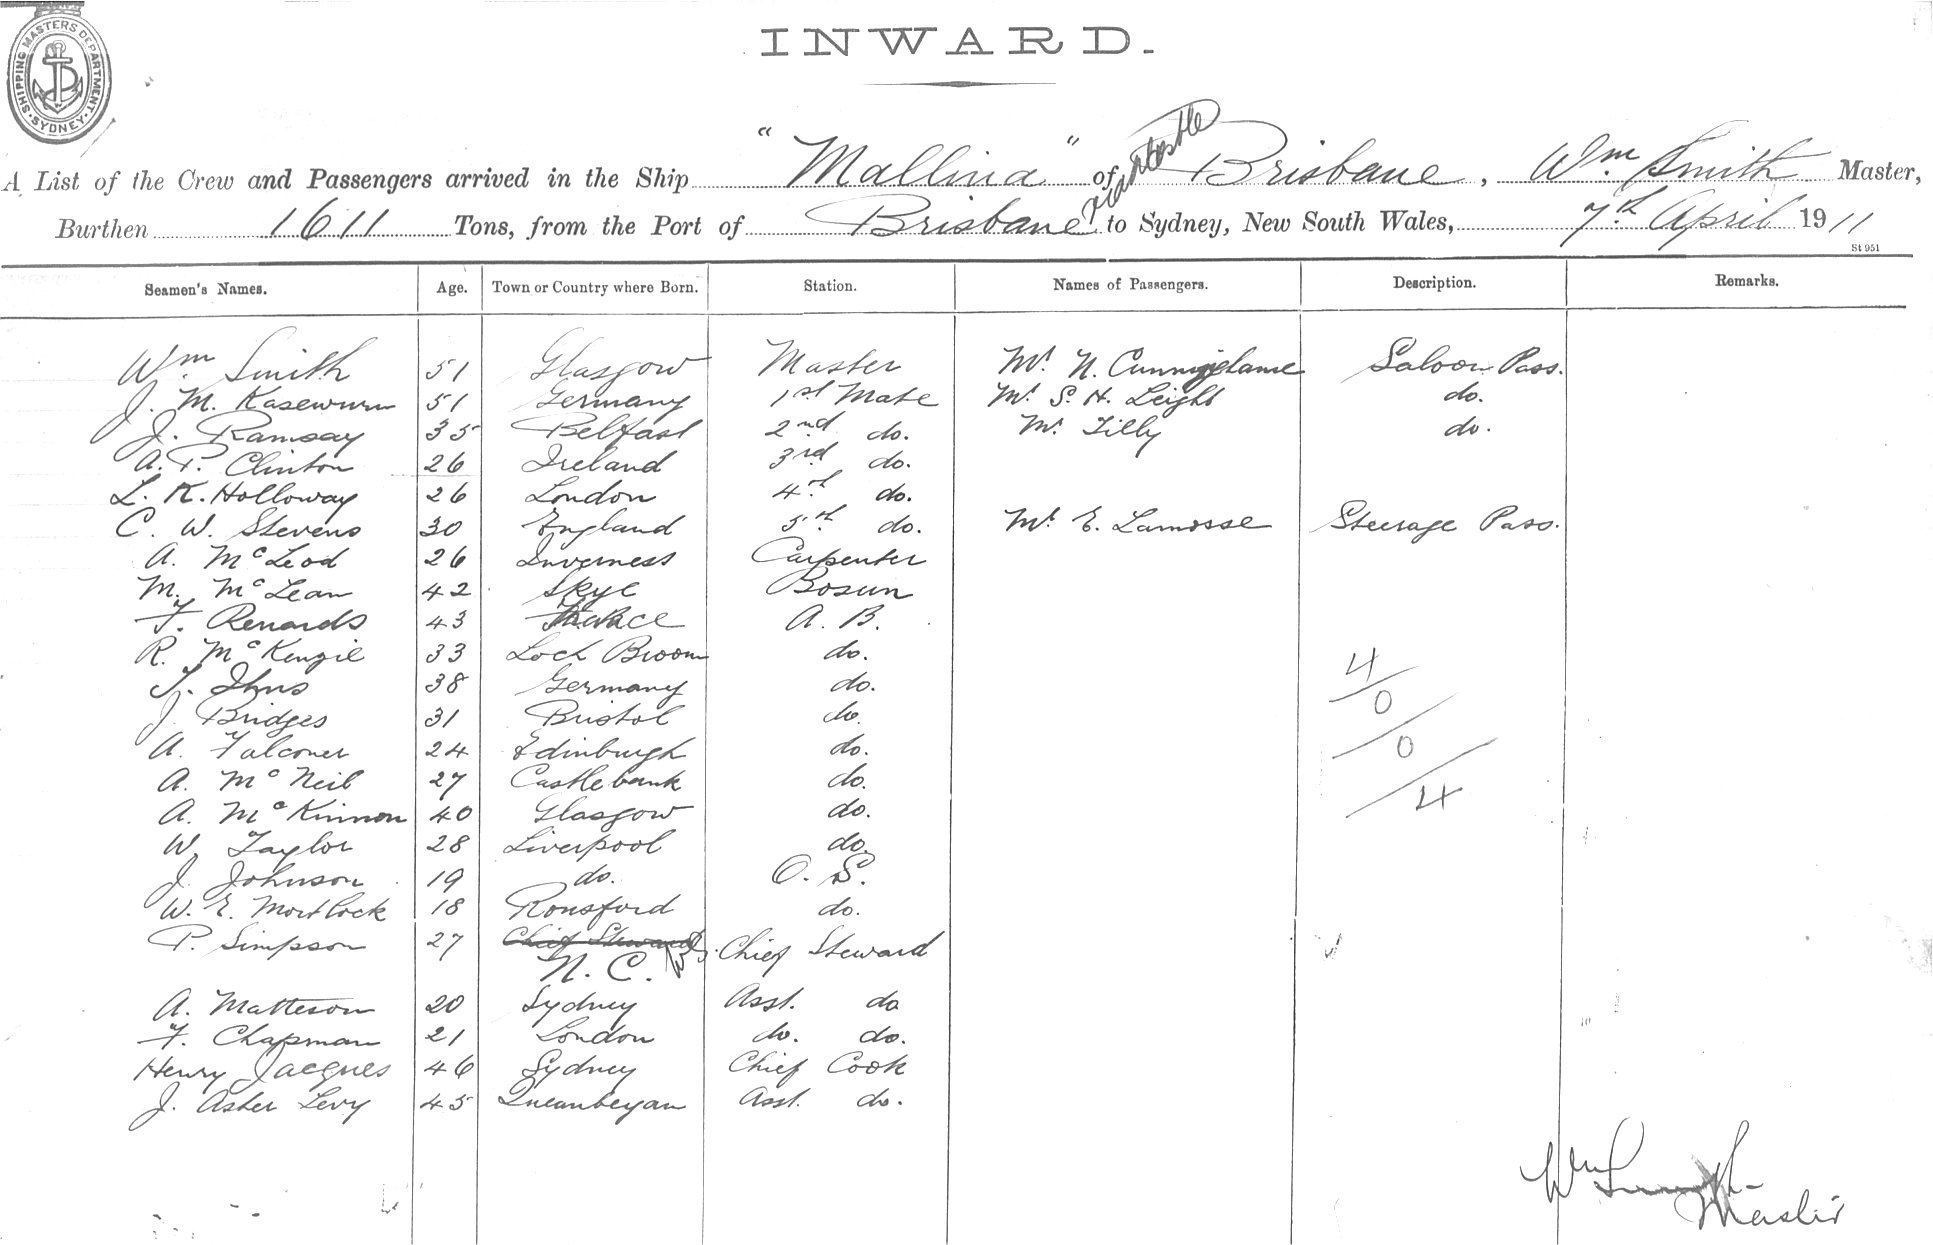 SHIPPING MASTERS DEPARTMENT
SYDNEY
INWARD.
A List of the Crew and Passengers arrived in the Ship "Mallina" of Brisbane, Wm Smith Master,
Burthen 1611 Tons, from the Port of Brisbane to Sydney, New South Wales, 7th April 1911
St 951
Seamen's Names. Age. Town or Country where Born. Station. Names of Passengers. Description. Remarks.
Wm Smith 51 Glasgow Master Mr N. Saloon Pass.
J. M. Kasewurm 51 Germany 1st Mate Mr S. H. Leight do.
J. Ramsay 35 Belfast 2nd do. Mr Tilly do.
A. P. Clinton 26 Ireland 3rd do.
L. K. Holloway 26 London 4th do.
C. W. Stevens 30 England 5th do. Mr E. Lamosse Steerage Pass.
A. McLeod 26 Inverness Carpenter
M. McLean 42 Skye Bosun
F. Renards 43 A. B.
R. McKenzie 33 Loch Broom do.
T. Ihns 38 Germany do.
J. Bridges 31 Bristol do.
A. Falconer 24 Edinburgh do.
A. McNeil 27 Castlebank do.
A. McKinnon 40 Glasgow do.
W. Taylor 28 Liverpool do.
J. Johnson 19 do. O. S.
W. E. Mortlock 18 Ronsford do.
P. Simpson 27 Chief Steward Chief Steward
N. C.
A. Matteson 20 Sydney Asst. do
F. Chapman 21 London do. do.
Henry Jacques 46 Sydney Chief Cook
J. Asher Levy 45 Queanbeyan Asst. do.
4
0
0
4
Wm Smith
Master